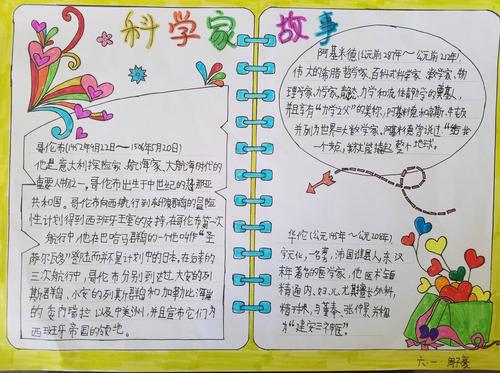 科学家
故事
哥伦布(1452年9月22日～1506年5月20日)
他是意大利探险家、航海家、大航海时代的
重要人物之一。哥伦布出生于中世纪的热那亚
共和国。哥伦布向西航行到
性计划得到西班牙王室的支持,在哥伦布第一次
航行中,他在巴哈马群岛的一个他叫作“圣
萨尔瓦多”登陆而并不是计划中的日本,在后来的
三次航行中,哥伦布分别到达大安的列
斯群岛、小安的列斯群岛和加勒比海岸
的委内瑞拉以及中美洲,并且宣布它们为
西班牙帝国的领地。
阿基米德(公元前287年～公元前212年),
伟大的希腊哲学家、百科式科学家、数学家、物
理学家、力学家,静态力学和流体静力学的奠基人,
并且享有“力学之父”的美称,阿基米德和高斯、牛顿
并列为世界三大数学家。阿基米德曾说过:“给我
一个支点,我就能撬起整个地球。
华佗(公元145年～公元208年),
字元化,一名旉,沛国谯县人,东汉
末年著名的医学家,他医术全面
精通内、妇、儿、尤擅长外科,
精于手术,与董奉、张仲景并称
为“建安三神医”。
六.一